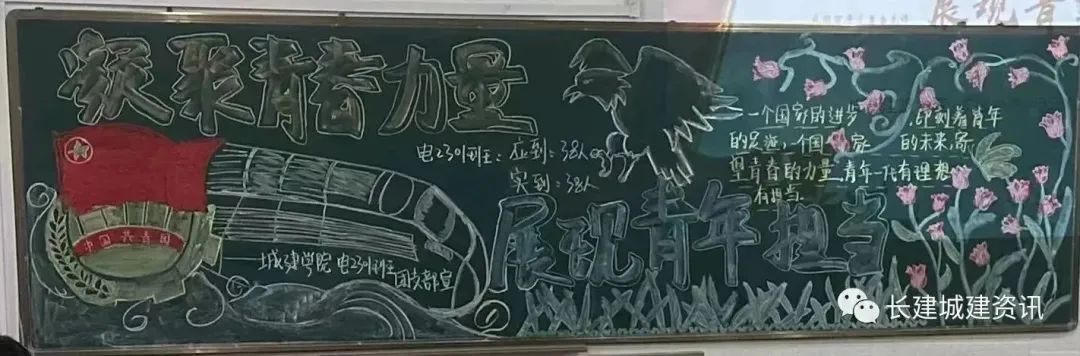 展现青
凝聚青春力量
电2301班：应到：38人
实到：38人
一个国家的进步，印刻着青年
的足迹，个国家的未来，寄
望青春的力量，青年一代有理想
有担当
展现青年担当
团青共国中
城建学院 电2301班 团支部宣
长建城建资讯